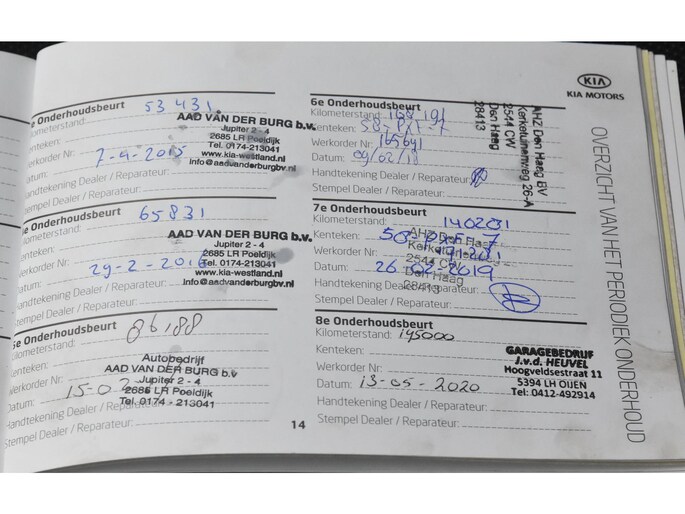 KIA
KIA MOTORS
OVERZICHT VAN HET PERIODIEK ONDERHOUD
Onderhoudsbeurt
Kilometerstand: 53431
Kenteken:
Werkorder Nr:
Datum: 7-4-2015
Handtekening Dealer / Reparateur:
Stempel Dealer / Reparateur:
AAD VAN DER BURG b.v.
Jupiter 2 - 4
2685 LR Poeldijk
Tel. 0174-213041
www.kia-westland.nl
info@aadvanderburgbv.nl
Onderhoudsbeurt
Kilometerstand: 65831
Kenteken:
Werkorder Nr:
Datum: 29-2-2016
Handtekening Dealer / Reparateur:
Stempel Dealer / Reparateur:
AAD VAN DER BURG b.v.
Jupiter 2 - 4
2685 LR Poeldijk
Tel. 0174-213041
www.kia-westland.nl
info@aadvanderburgbv.nl
5e Onderhoudsbeurt
Kilometerstand: 86188
Kenteken:
Werkorder Nr:
Datum: 15-02
Handtekening Dealer / Reparateur:
Stempel Dealer / Reparateur:
Autobedrijf
AAD VAN DER BURG b.v
Jupiter 2 - 4
2685 LR Poeldijk
Tel. 0174 - 213041
6e Onderhoudsbeurt
Kilometerstand:
Kenteken:
Werkorder Nr: 165641
Datum: 09/02/18
Handtekening Dealer / Reparateur:
Stempel Dealer / Reparateur:
AHZ Den Haag BV
Kerketuinenweg 26-A
2544 CW
Den Haag
28413
7e Onderhoudsbeurt
Kilometerstand: 140231
Kenteken:
Werkorder Nr:
Datum: 26-02-2019
Handtekening Dealer / Reparateur:
Stempel Dealer / Reparateur:
AHZ Den Haag
2544 CW
Den Haag
28413
8e Onderhoudsbeurt
Kilometerstand: 145000
Kenteken:
Werkorder Nr:
Datum: 13-05-2020
Handtekening Dealer / Reparateur:
Stempel Dealer / Reparateur:
GARAGEBEDRIJF
J.v.d. HEUVEL
Hoogveldsestraat 11
5394 LH OIJEN
Tel: 0412-492914
14